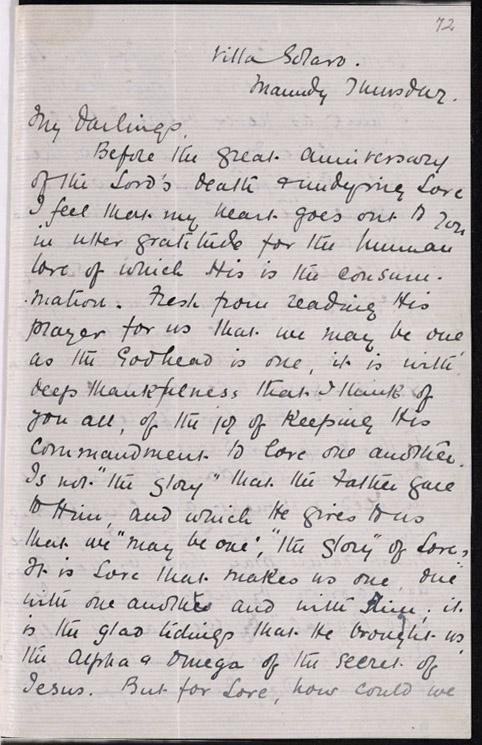 72
Villa Solaro.
Maundy Thursday.
My Darlings,
Before the great anniversary
of the Lord's death & undying Love
I feel that my heart goes out to you
in utter gratitude for the human
love of which His is the consum-
mation. Fresh from reading His
prayer for us that we may be one
as the Godhead is one, it is with
deep thankfulness that I think of
you all, of the joy of keeping His
Commandment to love one another.
Is not "the glory" that the Father gave
to Him, and which He gives to us
that we "may be one", "the glory" of Love,
It is Love that makes us one, one
with one another and with Him; it
is the glad tidings that He brought us
the Alpha & Omega of the secret of
Jesus. But for Love, how could we